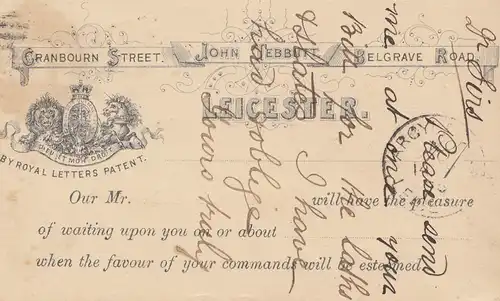 CRANBOURN STREET. JOHN TEBBUTT, BELGRAVE ROAD
LEICESTER.
DIEU ET MON DROIT
BY ROYAL LETTERS PATENT.
Our Mr. will have the pleasure
of waiting upon you on or about
when the favour of your commands will be esteemed.
Dr Sirs
Please send
me at once your
Bill for the laths
& slates I have
had & oblige
Yours truly